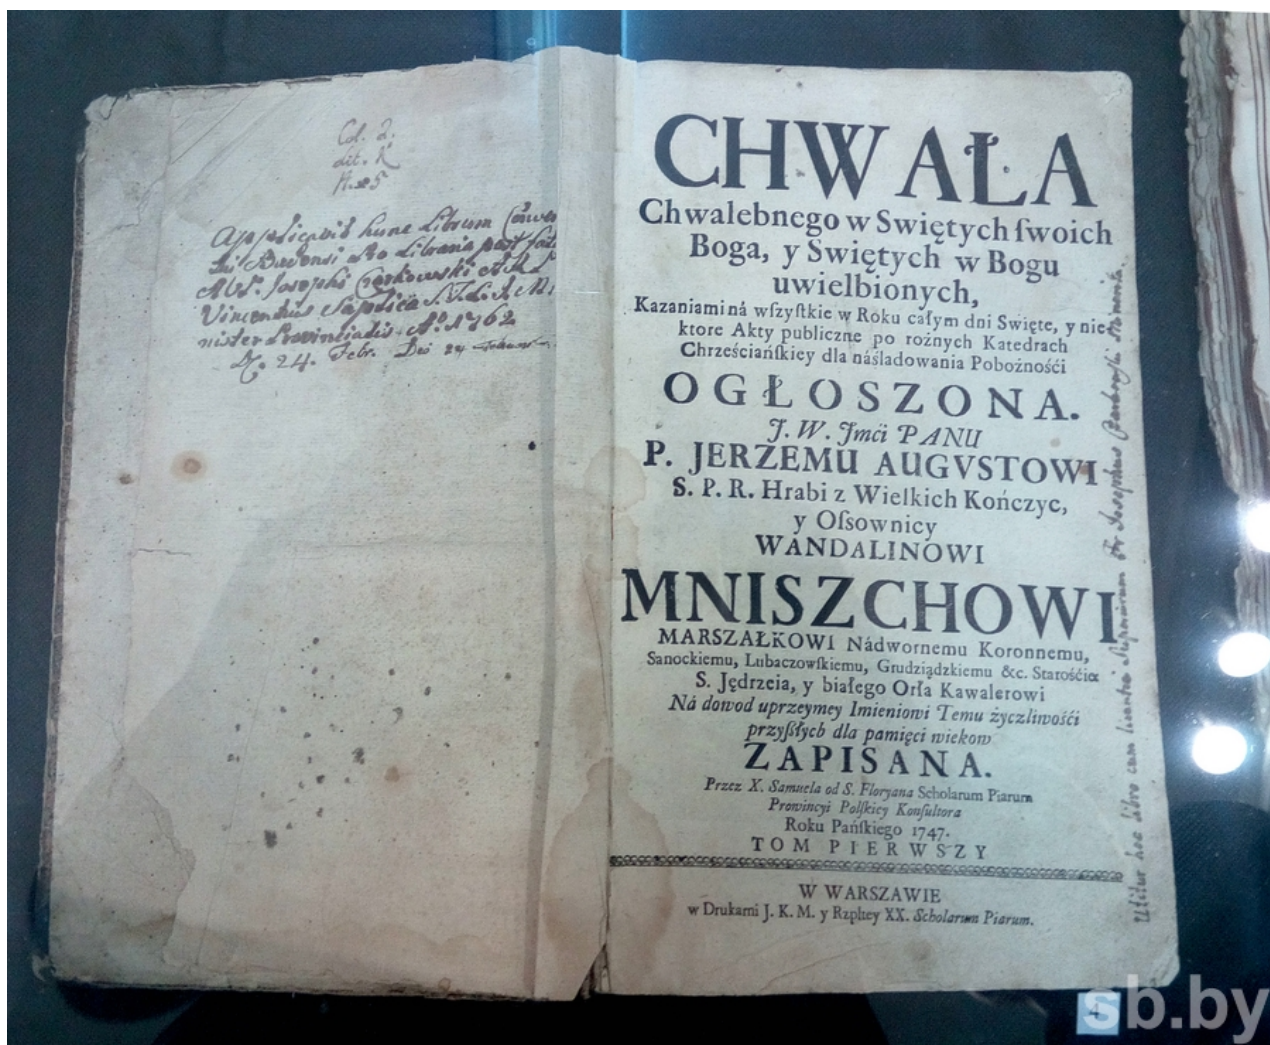 Col. 2.
Lit. K
N. 25
Applicavit hunc Librum
Libraria post
Josephi
Vincentius Sapalica S.
nister Provincialis Aº 1762
D. 24. Febr.
CHWAŁA
Chwalebnego w Swiętych ſwoich
Boga, y Swiętych w Bogu
uwielbionych,
Kazaniami ná wſzyſtkie w Roku całym dni Swięte, y nie-
ktore Akty publiczne po rożnych Katedrach
Chrześciańſkiey dla náśladowania Pobożnośći
OGŁOSZONA.
J. W. Jmći PANU
P. JERZEMU AUGVSTOWI
S. P. R. Hrabi z Wielkich Kończyc,
y Oſsownicy
WANDALINOWI
MNISZCHOWI
MARSZAŁKOWI Nádwornemu Koronnemu,
Sanockiemu, Lubaczowſkiemu, Grudziądzkiemu &c. Starośćie
S. Jędrzeia, y białego Orła Kawalerowi
Ná dowod uprzeymey Imieniowi Temu życzliwośći
przyſzłych dla pamięci wiekow
ZAPISANA.
Przez X. Samuela od S. Floryana Scholarum Piarum
Prowincyi Polſkiey Konſultora
Roku Pańſkiego 1747.
TOM PIERWSZY
W WARSZAWIE
w Drukarni J. K. M. y Rzpltey XX. Scholarum Piarum.
Utitur hoc libro cum licentia Superiorum Fr Josephus
4
sb.by